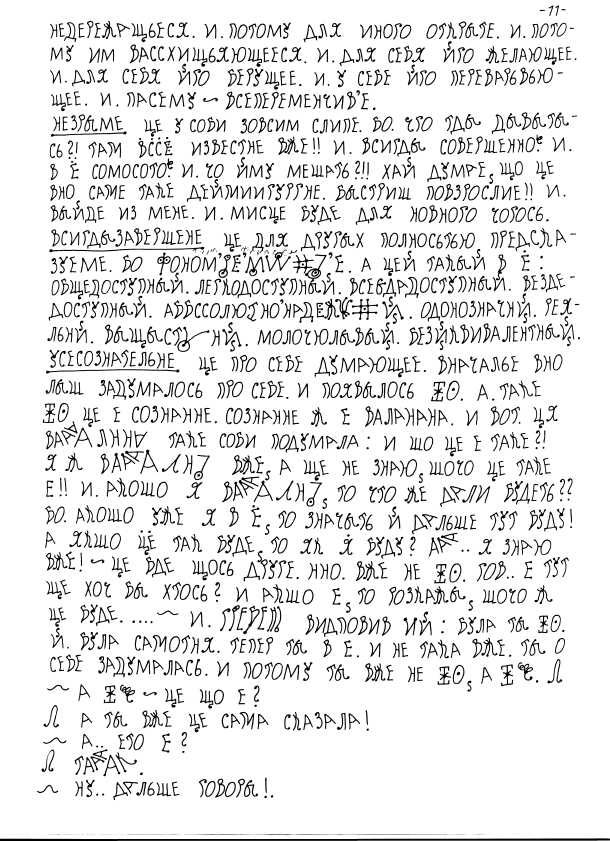 -11-
НЕДЕРЕЖАЩЬЕЕСЯ. И. ПОТОМУ ДЛЯ ИНОГО ОТКРЫТЕ. И. ПОТО-
МУ ИМ ВАССХИЩЬЯЮЩЕЕСЯ. И. ДЛЯ СЕБЯ ЙГО ЖЕЛАЮЩЕЕ.
И. ДЛЯ СЕБЯ ЙГО БЕРУЩЕЕ. И. У СЕБЕ ЙГО ПЕРЕВАРЬВЬЮ-
ЩЕЕ. И. ПАСЕМУ ~ ВСЕПЕРЕМЕНЧИВ'Е.
НЕЗРЫМЕ ЦЕ У СОБИ ЗОВСИМ СЛИПЕ. БО. ЧТО ТДЫ ДЬВЫТЫ-
СЬ?! ТАМ ВСЁ ИЗВЕСТНЕ ВЖЕ!! И. ВСИГДЫ СОВЕРШЕННО! И.
В Ё СОМОСОТО! И. ЧО ЙМУ МЕШАТЬ?!! ХАЙ ДУМАЕ, ЩО ЦЕ
ВНО САМЕ ТАКЕ ДЕЙМИИГУРГНЕ. БЫСТРИШ ПОВЗРОСЛИЕ!! И.
ВЫЙДЕ ИЗ МЕНЕ. И. МИСЦЕ БУДЕ ДЛЯ НОВНОГО ЧОГОСЬ.
ВСИГДЫЗАВЕРШЕНЕ ЦЕ ДЛЯ ДРУГЫХ ПОЛНОСЬТЬЮ ПРЕДСКА-
ЗУЕМЕ. БО А ЦЕЙ ТАКЫЙ В Ё :
ОБЩЕДОСТУПНЫЙ. ЛЕГКОДОСТУПНЫЙ. ВСЕГДАДОСТУПНЫЙ. ВЕЗДЕ-
ДОСТУПНЫЙ. ОДНОЗНАЧНЫЙ. РЕЯ-
ЛЬНИЙ. МОЛОЧЮЛЫВЫЙ. БЕЗИКВИВАЛЕНТНЫЙ.
УСЕСОЗНАТЕЛЬНЕ ЦЕ ПРО СЕБЕ ДУМАЮЩЕЕ. ВНАЧАЛЬЕ ВНО
ЛЫШ ЗАДУМАЛОСЬ ПРО СЕБЕ. И ПОЯВЫЛОСЬ А. ТАКЕ
ЦЕ Е СОЗНАННЕ. СОЗНАННЕ Ж Е ВАЛАНАНА. И ВОТ. ЦЯ
ТАКЕ СОБИ ПОДУМАЛА : И ШО ЦЕ Е ТАКЕ?!
Я Ж ВЖЕ, А ЩЕ НЕ ЗНАЮ, ШОЧО ЦЕ ТАКЕ
Е!! И. АКОШО Я ТО ЧТО ЖЕ ДАЛИ БУДЕТЬ??
БО. АКОШО УЖЕ Я В Ё, ТО ЗНАЧЫТЬ Й ДАЛЬШЕ ТУТ БУДУ!
А ЯКШО ЦЕ ТАК БУДЕ, ТО ЯК Я БУДУ? Я ЗНАЮ
ВЖЕ! ~ ЦЕ БДЕ ЩОСЬ ДРУГЕ. ННО. ВЖЕ НЕ ГОВ.. Е ТУТ
ЩЕ ХОЧ БЫ ХТОСЬ? И АКШО Е, ТО РОЗКАЖЫ, ШОЧО Ж
ЦЕ БУДЕ. ....~ И. ВИДПОВИВ ИЙ : БУЛА ТЫ
Й. БУЛА САМОТНЯ. ТЕПЕР ТЫ В Е. И НЕ ТАКА ВЖЕ. ТЫ О
СЕБЕ ЗАДУМАЛАСЬ. И ПОТОМУ ТЫ ВЖЕ НЕ А
~ А ~ ЦЕ ШО Е?
А ТЫ ВЖЕ ЦЕ САМА СКАЗАЛА!
~ А.. ЕТО Е?
~ НУ.. ДАЛЬШЕ ГОВОРЫ!.